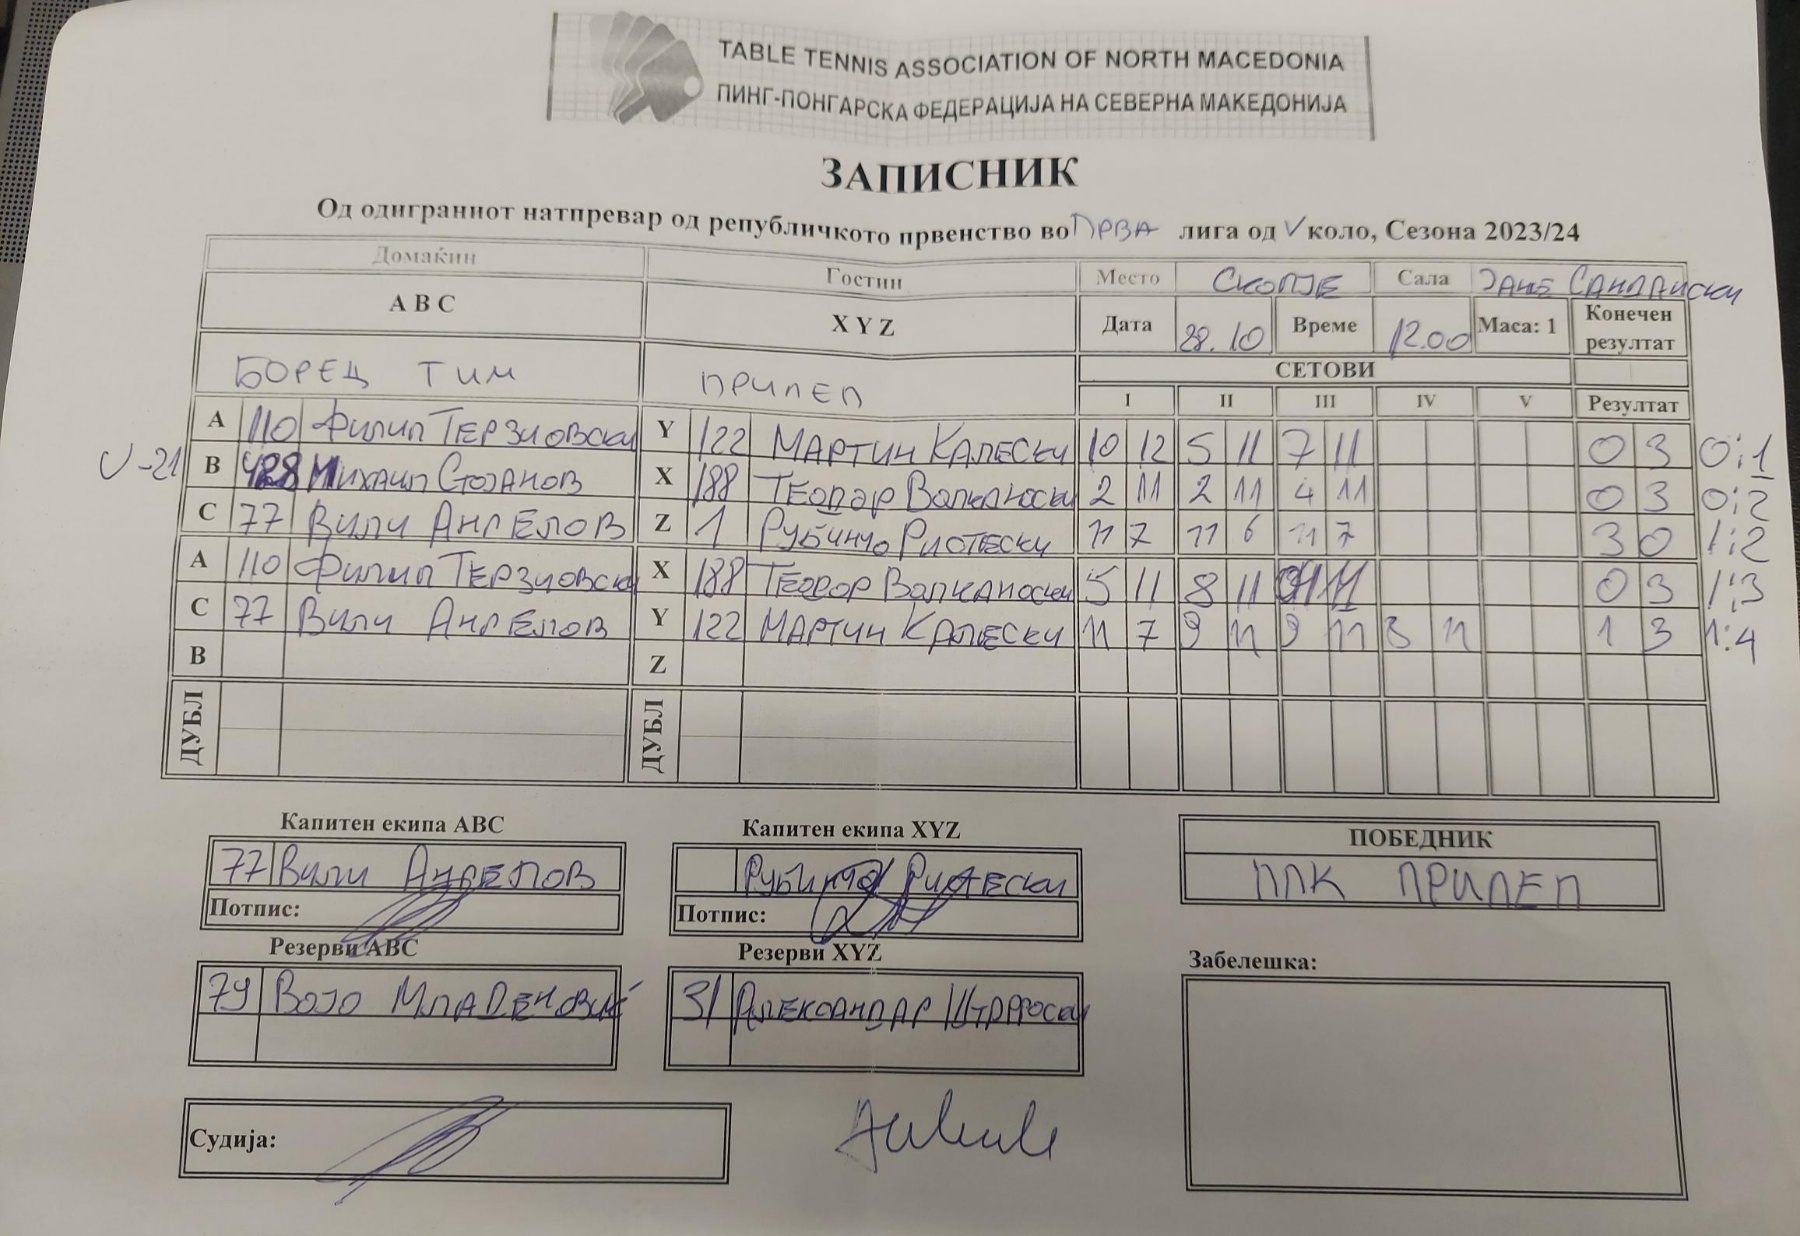 TABLE TENNIS ASSOCIATION OF NORTH MACEDONIA
ПИНГ-ПОНГАРСКА ФЕДЕРАЦИЈА НА СЕВЕРНА МАКЕДОНИЈА
ЗАПИСНИК
Од одиграниот натпревар од републичкото првенство во ПРВА лига од V коло, Сезона 2023/24
Домаќин Гостин Место СКОПЈЕ Сала ЈАНЕ САНДАНСКИ
A B C X Y Z Дата 28.10 Време 12.00 Маса: 1 Конечен резултат
БОРЕЦ ТИМ ПРИЛЕП СЕТОВИ
I II III IV V Резултат
A 110 ФИЛИП ТЕРЗИОВСКИ Y 122 МАРТИН КАЛЕСКИ 10 12 5 11 7 11 0 3 0:1
U-21 B 428 МИХАИЛ СТОЈАНОВ X 188 ТЕОДОР 2 11 2 11 4 11 0 3 0:2
C 77 ВИЛИ АНГЕЛОВ Z 1 РУБИНЧО РИСТЕСКИ 11 7 11 6 11 7 3 0 1:2
A 110 ФИЛИП ТЕРЗИОВСКИ X 188 ТЕОДОР ВОЛКАНОСКИ 5 11 8 11 11 0 3 1:3
C 77 ВИЛИ АНГЕЛОВ Y 122 МАРТИН КАЛЕСКИ 11 7 9 11 9 11 8 11 1 3 1:4
B Z
ДУБЛ ДУБЛ
Капитен екипа ABC Капитен екипа XYZ ПОБЕДНИК
77 ВИЛИ АНГЕЛОВ РУБИНЧО РИСТЕСКИ ППК ПРИЛЕП
Потпис: Потпис:
Резерви ABC Резерви XYZ Забелешка:
79 ВОЈО МЛАДЕНОВИЌ 31 АЛЕКСАНДАР
Судија: